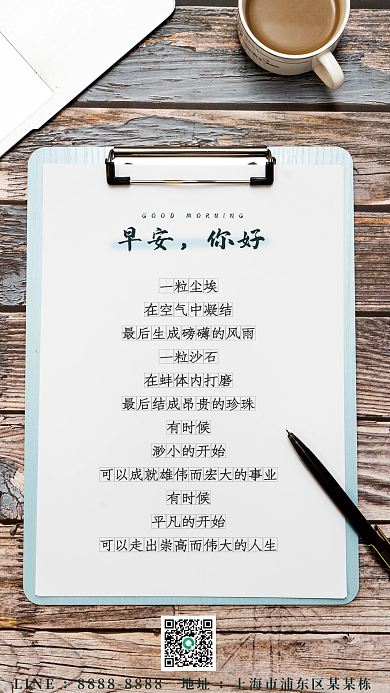 GOOD MORNING
早安，你好
一粒尘埃
在空气中凝结
最后生成磅礴的风雨
一粒沙石
在蚌体内打磨
最后结成昂贵的珍珠
有时候
渺小的开始
可以成就雄伟而宏大的事业
有时候
平凡的开始
可以走出崇高而伟大的人生
LINE：8888-8888 地址：上海市浦东区某某栋